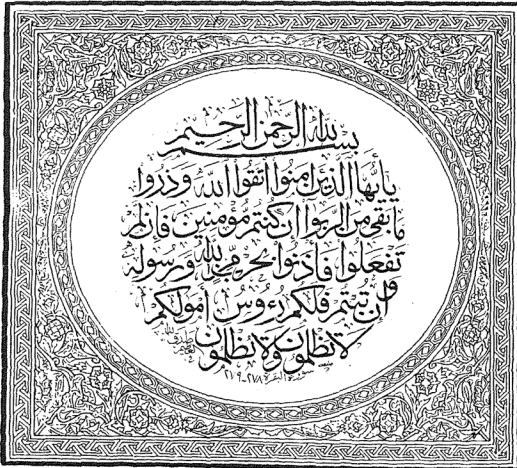 بسم الله الرحمن الرحيم
يأيها الذين امنوا اتقوا الله وذروا
ما بقي من الربوا ان كنتم مؤمنين فان لم
تفعلوا فأذنوا بحرب من الله ورسوله
وان تبتم فلكم رءوس أمولكم
لا تظلمون ولا تظلمون
صدق الله العظيم
سورة البقرة ٢٧٨-٢٧٩